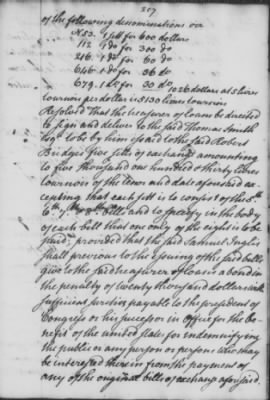 207
of the following denominations viz
N 53. 1 sett for 600 dollars
112. 1 do for 300 do
216. 1 do for 60 do
646. 1 do for 36 do
679. 1 do for 30 do 1026 dollars at 5 livres
tournois per dollar is 5130 livres tournois
Resolved That the treasurer of loans be directed
to sign and deliver to the said Thomas Smith
Esqr to be by him issued to the said Robert
Bridges five setts of exchange amounting
to five thousand one hundred & thirty livres
tournois of the tenor and date aforesaid ex
cepting that each sett is to consist of the 5th
6th 7th & 8th bills and to specify in the body
of each bill that one only of the eight is to be
paid; provided that the said Samuel Inglis
shall previous to the issuing of the said bills
give to the said treasurer of loans a bond in
the penalty of twenty thousand dollars with
sufficient sureties payable to the president of
Congress or his successor in office for the be
nefit of the united states for indemnifying
the public or any person or persons who may
be interested therein from the payment of
any of the original bills of exchange aforesaid.